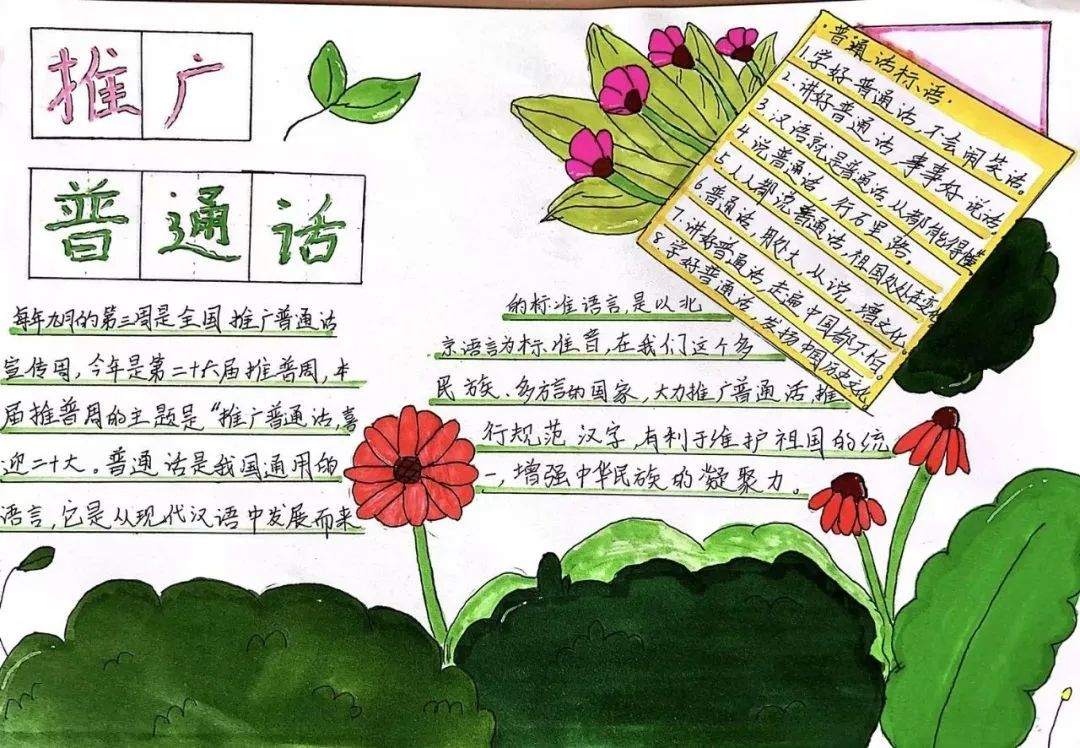 推广
普通话
每年九月的第三周是全国推广普通话
宣传周，今年是第二十六届推普周，本
届推普周的主题是“推广普通话，喜
迎二十大。普通话是我国通用的
语言，它是从现代汉语中发展而来
的标准语言，是以北
京语言为标准音，在我们这个多
民族、多方言的国家，大力推广普通话，推
行规范汉字，有利于维护祖国的统
一，增强中华民族的凝聚力。
普通话标语.
1.学好普通话，不会闹笑话。
2.讲好普通话，事事好说话。
3.汉语就是普通话从都能得懂
4.说普通话，行万里路。
5.人人都说普通话，祖国处处在变化
6.普通话，用处大，从说，
7.讲好普通话，走遍中国都不怕。
8.学好普通话，发扬中国历史文化